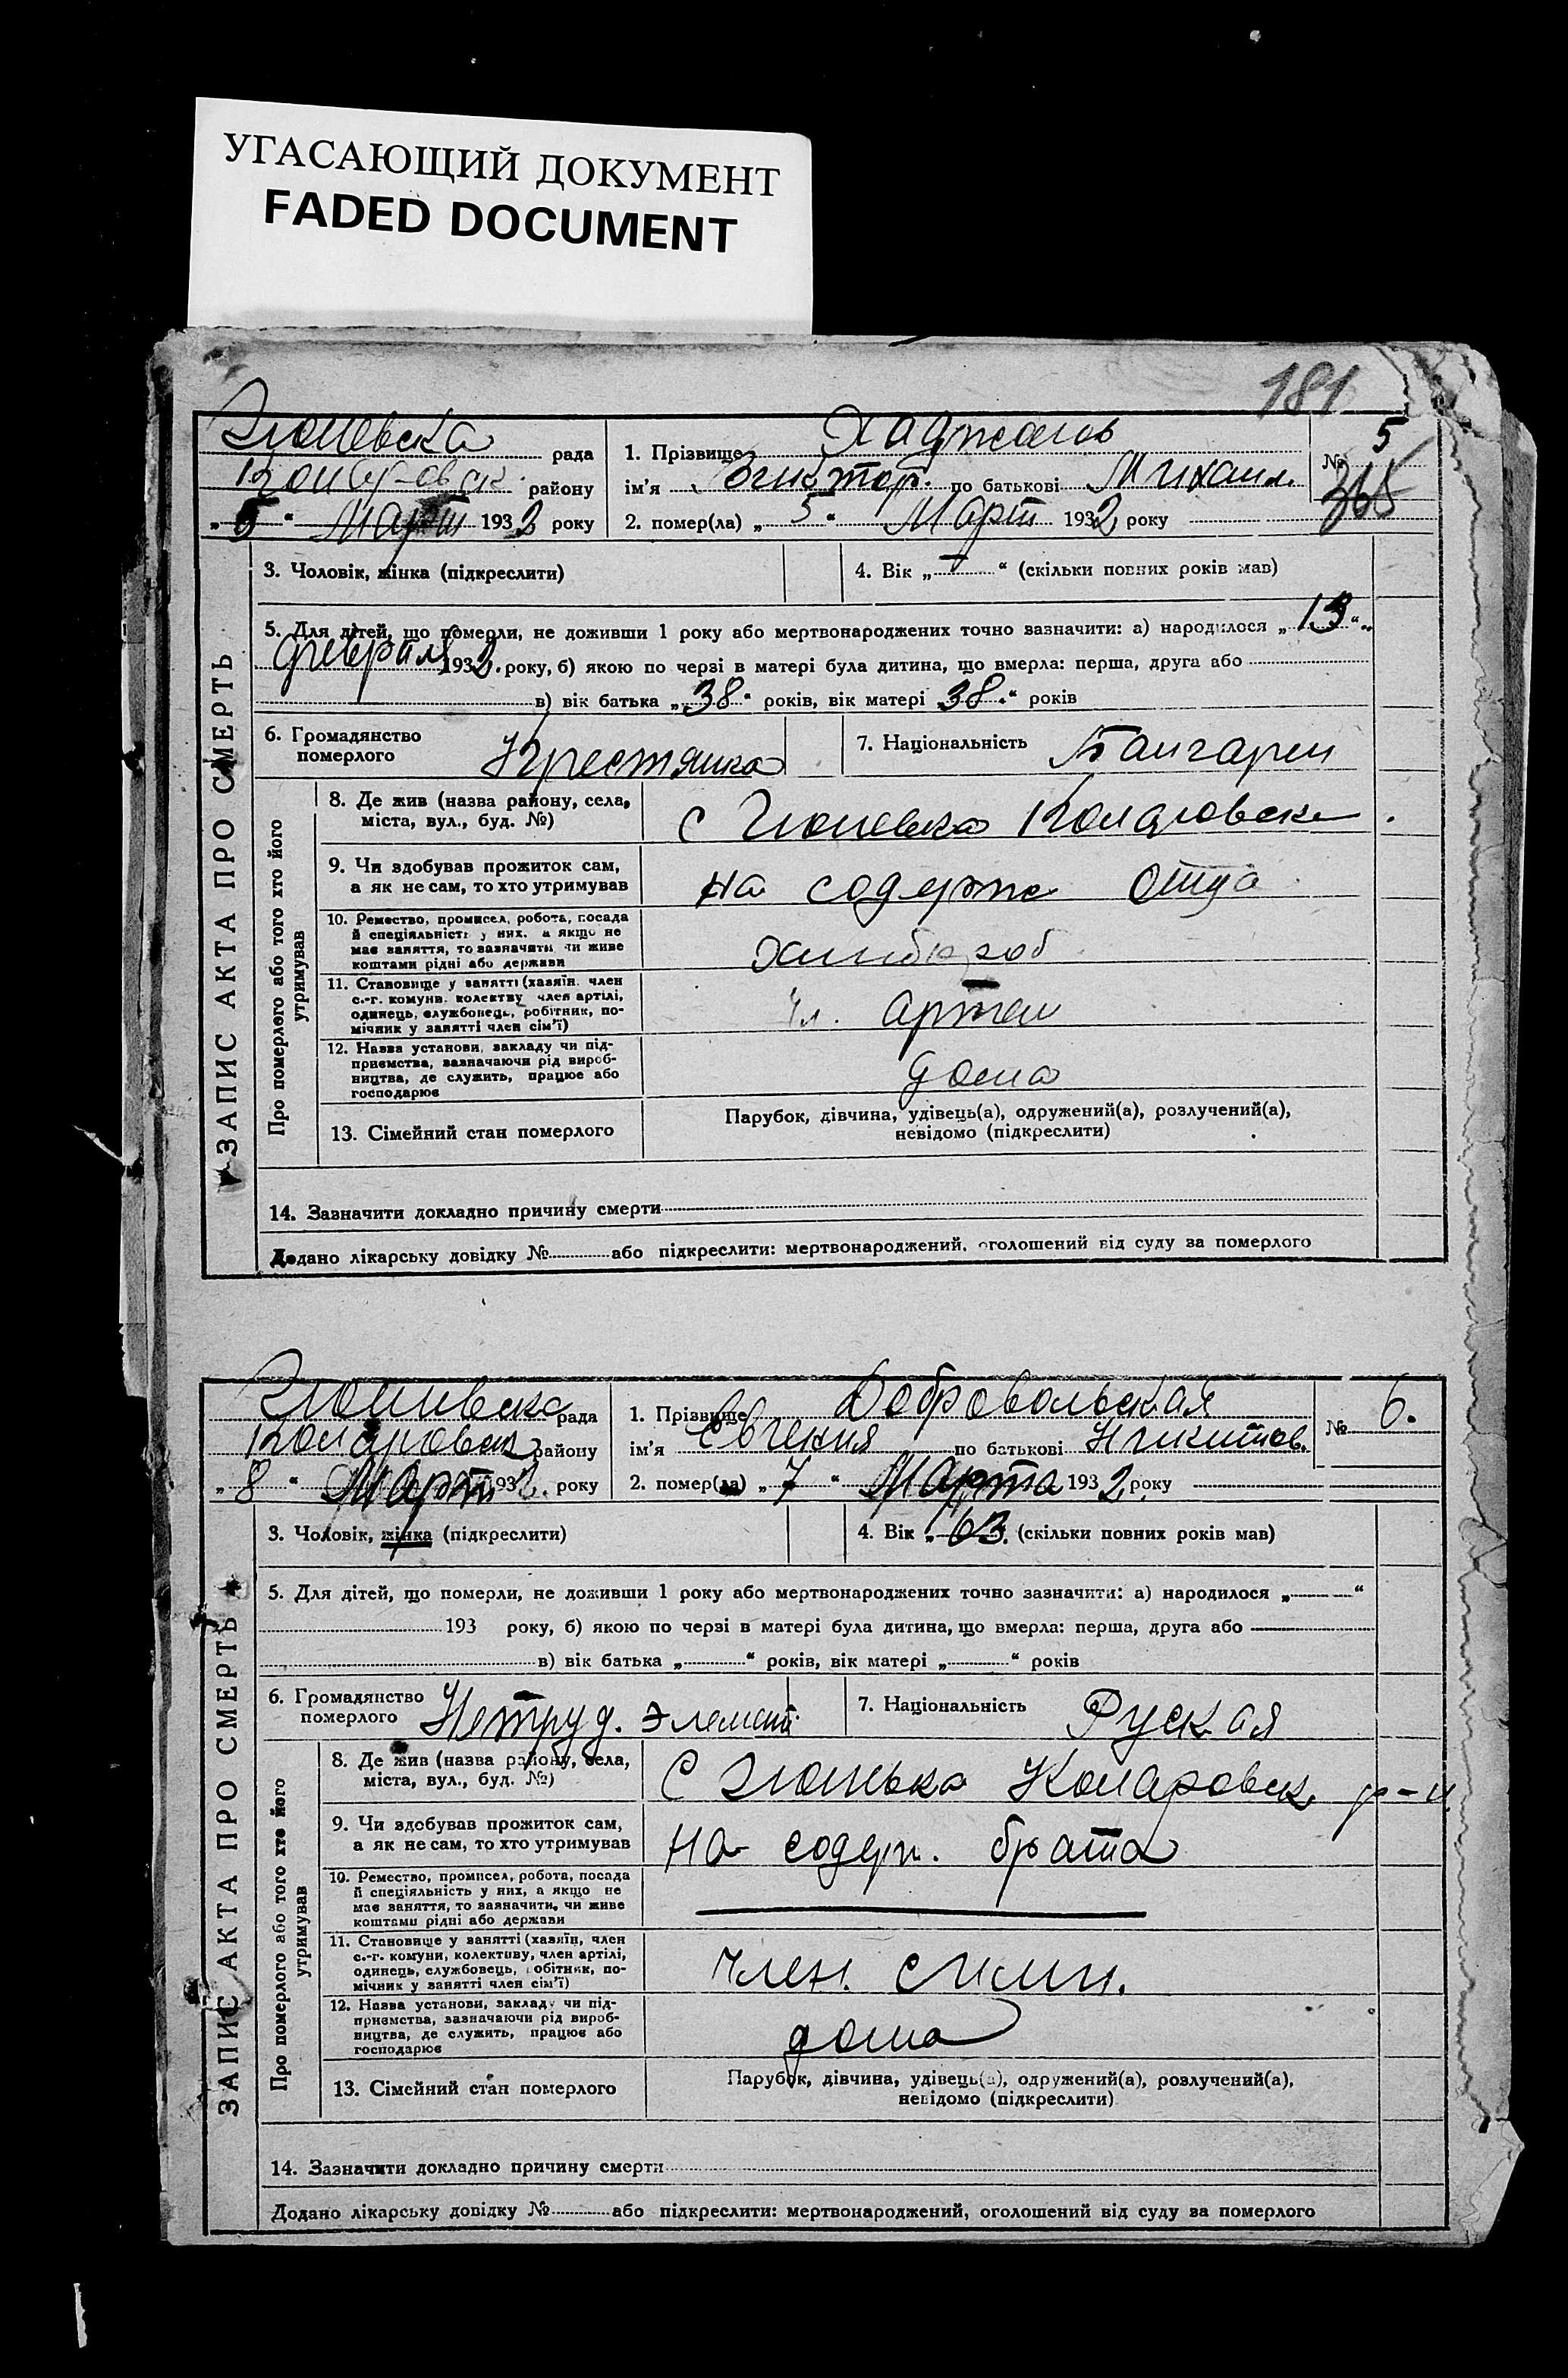 УГАСАЮЩИЙ ДОКУМЕНТ
FADED DOCUMENT
181
рада
району
„ 5 “ Март 1932 року
1. Прізвище
ім'я по батькові Михаил.
2. помер(ла) „ 5 “ Март 1932 року
№ 5
365
ЗАПИС АКТА ПРО СМЕРТЬ
3. Чоловік, жінка (підкреслити)
4. Вік „ — “ (скільки повних років мав)
5. Для дітей, що померли, не доживши 1 року або мертвонароджених точно зазначити: а) народилося „ 13 “
Февраля 1932. року, б) якою по черзі в матері була дитина, що вмерла: перша, друга або
в) вік батька „ 38 “ років, вік матері „ 38 “ років
6. Громадянство
померлого
Крестянка
7. Національність
Про померлого або того хто його
утримував
8. Де жив (назва району, села,
міста, вул., буд. №)
с
9. Чи здобував прожиток сам,
а як не сам, то хто утримував
на содерж отца
10. Ремество, промисел, робота, посада
й спеціяльність у них, а якщо не
має заняття, то зазначити, чи живе
коштами рідні або держави
11. Становище у занятті (хазяїн, член
с.-г. комуни, колективу, член артілі,
одинець, службовець, робітник, по-
мічник у занятті член сім'ї)
чл. артели
12. Назва установи, закладу чи під-
приємства, зазначаючи рід вироб-
ництва, де служить, працює або
господарює
дома
13. Сімейний стан померлого
Парубок, дівчина, удівець(а), одружений(а), розлучений(а),
невідомо (підкреслити)
14. Зазначити докладно причину смерти
Додано лікарську довідку № або підкреслити: мертвонароджений, оголошений від суду за померлого
рада
Коларовск району
„ 8 “ Март 1932. року
1. Прізвище Добровольская
ім'я Евгения по батькові Никитов.
2. помер(ла) „ 7 “ Марта 1932 року
№ 6.
ЗАПИС АКТА ПРО СМЕРТЬ
3. Чоловік, жінка (підкреслити)
4. Вік „ 63. “ (скільки повних років мав)
5. Для дітей, що померли, не доживши 1 року або мертвонароджених точно зазначити: а) народилося „ “
193 року, б) якою по черзі в матері була дитина, що вмерла: перша, друга або
в) вік батька „ “ років, вік матері „ “ років
6. Громадянство
померлого
Нетруд. элемент
7. Національність Руская
Про померлого або того хто його
утримував
8. Де жив (назва району, села,
міста, вул., буд. №)
С Коларовск р-н.
9. Чи здобував прожиток сам,
а як не сам, то хто утримував
на содерж. брата
10. Ремество, промисел, робота, посада
й спеціяльність у них, а якщо не
має заняття, то зазначити, чи живе
коштами рідні або держави
11. Становище у занятті (хазяїн, член
с.-г. комуни, колективу, член артілі,
одинець, службовець, робітник, по-
мічник у занятті член сім'ї)
член.
12. Назва установи, закладу чи під-
приємства, зазначаючи рід вироб-
ництва, де служить, працює або
господарює
дома
13. Сімейний стан померлого
Парубок, дівчина, удівець(а), одружений(а), розлучений(а),
невідомо (підкреслити)
14. Зазначити докладно причину смерти
Додано лікарську довідку № або підкреслити: мертвонароджений, оголошений від суду за померлого